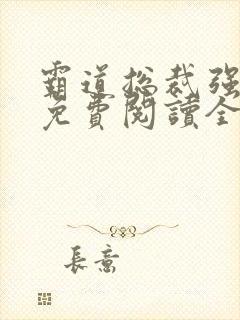 霸道总裁强
免費閱讀全
長意